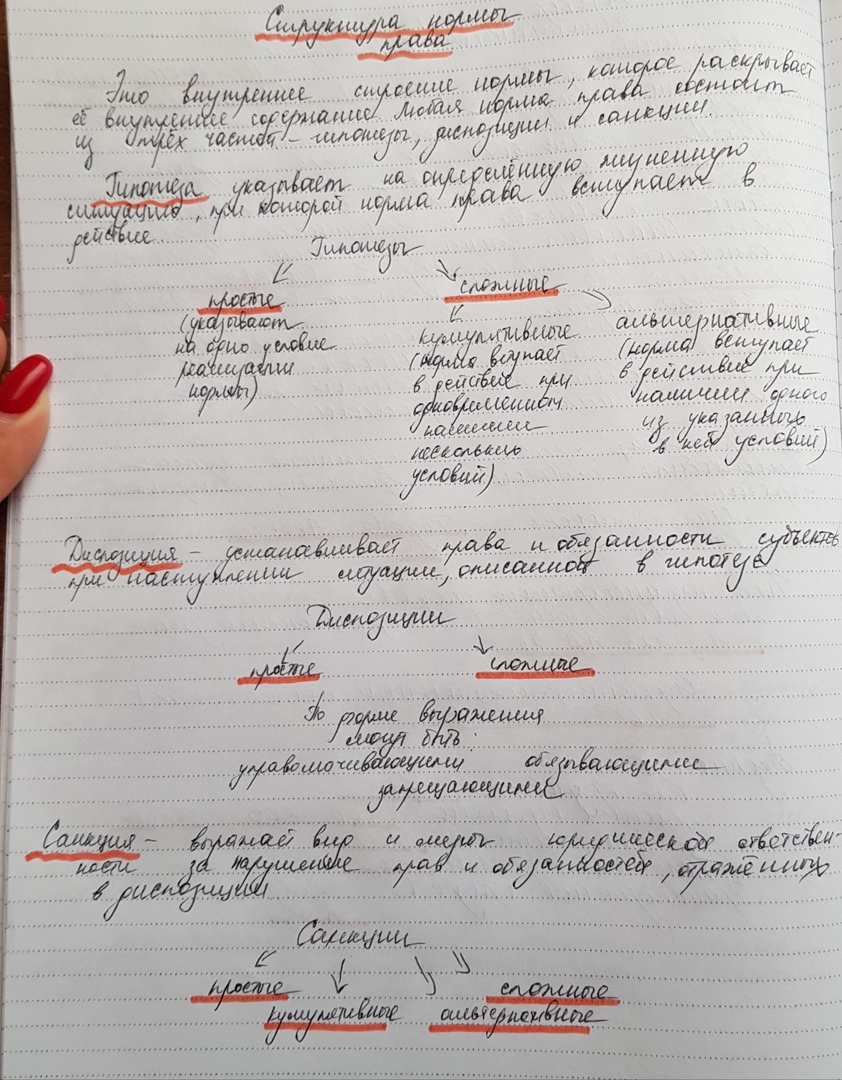 Структура нормы
права
Это внутреннее строение нормы, которое раскрывает
её внутреннее содержание Любая норма права состоит
из трёх частей – гипотезы, диспозиции и санкции.
Гипотеза указывает на определённую жизненную
ситуацию, при которой норма права вступает в
действие.
Гипотезы
простые сложные
(указывают
на одно условие
реализации
нормы)
кумулятивные
(норма вступает
в действие при
одновременном
наличии
нескольких
условий)
альтернативные
(норма вступает
в действие при
наличии одного
из указанных
в ней условий)
Диспозиция – устанавливает права и обязанности субъектов
при наступлении ситуации, описанной в гипотезе
Диспозиции
простые сложные
По форме выражения
могут быть:
управомочивающими обязывающими
запрещающими
Санкция – выражает вид и меры юридической ответствен-
ности за нарушение прав и обязанностей, отражённых
в диспозиции
Санкции
простые сложные
кумулятивные альтернативные